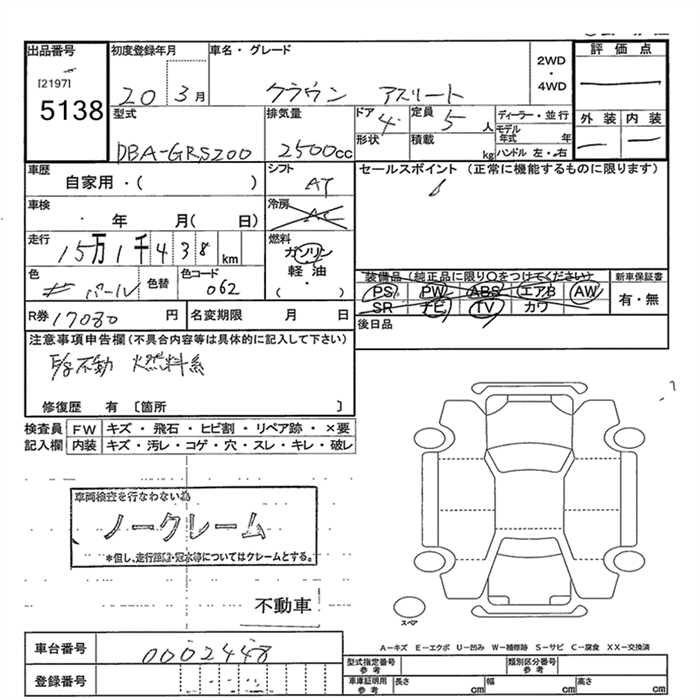 出品番号 初度登録年月 車名・グレード 評価点
[2197]
5138
20 3月 クラウン アスリート
2WD
・
4WD
型式 排気量 ドア 定員 ディーラー・並行 外装 内装
DBA-GRS200 2500cc 4 5人
モデル年式 年
形状 積載 kg ハンドル 左・右
車歴 シフト セールスポイント (正常に機能するものに限ります)
自家用・( ) AT
車検 冷房
・ 年 月( 日) AC
走行 燃料
15万1千438km ガソリン
軽油
・( )
色 色替 色コード
パール 062
装備品 (純正品に限り○をつけてください) 新車保証書
PS PW ABS エアB AW 有・無
SR ナビ TV カワ
R券 17080 円 名変期限 月 日 後日品
注意事項申告欄 (不具合内容等は具体的に記入して下さい)
E/g不動 燃料系
修復歴 有 [箇所 ]
検査員 FW キズ・飛石・ヒビ割・リペア跡・×要
記入欄 内装 キズ・汚レ・コゲ・穴・スレ・キレ・破レ
車両検査を行なわない為
ノークレーム
*但し、走行距離・冠水等についてはクレームとする。
不動車
スペア
A-キズ E-エクボ U-凹み W-補修跡 S-サビ C-腐食 XX-交換済
車台番号 0002448
登録番号
型式指定番号 参考 類別区分番号 参考
車庫証明用 参考 長さ cm 幅 cm 高さ cm